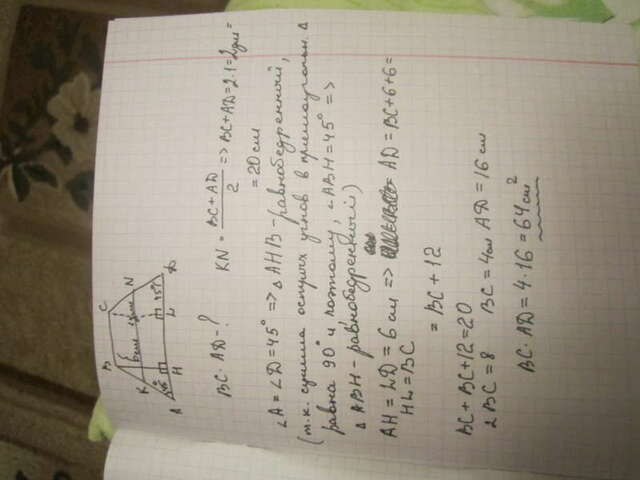 B C
K 6 см 1дм N
A 45° H L 45° D
BC · AD - ?
KN = BC + AD / 2 => BC + AD = 2 · 1 = 2 дм =
= 20 см
∠A = ∠D = 45° => △ AHB - равнобедренный,
(т.к. сумма острых углов в прямоугольн. △
равна 90° и, поэтому, ∠ABH = 45° =>
△ ABH - равнобедренный)
AH = LD = 6 см => AD = BC + 6 + 6 =
HL = BC
= BC + 12
BC + BC + 12 = 20
2 BC = 8 BC = 4 см AD = 16 см
BC · AD = 4 · 16 = 64 см²